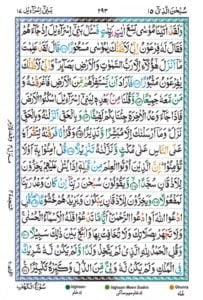 سُبْحٰنَ الَّذِيْٓ ١٥ ٢٩٣ بَنِيْٓ اِسْرَآءِيْلَ ١٧
وَلَقَدْ اٰتَيْنَا مُوْسٰى تِسْعَ اٰيٰتٍۭ بَيِّنٰتٍ فَسْـَٔلْ بَنِيْٓ اِسْرَآءِيْلَ اِذْ جَآءَهُمْ
فَقَالَ لَهٗ فِرْعَوْنُ اِنِّيْ لَاَظُنُّكَ يٰمُوْسٰى مَسْحُوْرًا قَالَ لَقَدْ عَلِمْتَ
مَآ اَنْزَلَ هٰٓؤُلَآءِ اِلَّا رَبُّ السَّمٰوٰتِ وَالْاَرْضِ بَصَآئِرَ وَاِنِّيْ
لَاَظُنُّكَ يٰفِرْعَوْنُ مَثْبُوْرًا فَاَرَادَ اَنْ يَّسْتَفِزَّهُمْ مِّنَ الْاَرْضِ
فَاَغْرَقْنٰهُ وَمَنْ مَّعَهٗ جَمِيْعًا وَّقُلْنَا مِنْۢ بَعْدِهٖ لِبَنِيْٓ اِسْرَآءِيْلَ
اسْكُنُوا الْاَرْضَ فَاِذَا جَآءَ وَعْدُ الْاٰخِرَةِ جِئْنَا بِكُمْ لَفِيْفًا وَبِالْحَقِّ
اَنْزَلْنٰهُ وَبِالْحَقِّ نَزَلَ وَمَآ اَرْسَلْنٰكَ اِلَّا مُبَشِّرًا وَّنَذِيْرًا وَقُرْاٰنًا
فَرَقْنٰهُ لِتَقْرَاَهٗ عَلَى النَّاسِ عَلٰى مُكْثٍ وَّنَزَّلْنٰهُ تَنْزِيْلًا قُلْ اٰمِنُوْا بِهٖٓ اَوْ لَا
تُؤْمِنُوْا اِنَّ الَّذِيْنَ اُوْتُوا الْعِلْمَ مِنْ قَبْلِهٖٓ اِذَا يُتْلٰى عَلَيْهِمْ يَخِرُّوْنَ
لِلْاَذْقَانِ سُجَّدًا وَّيَقُوْلُوْنَ سُبْحٰنَ رَبِّنَآ اِنْ كَانَ وَعْدُ رَبِّنَا لَمَفْعُوْلًا
وَيَخِرُّوْنَ لِلْاَذْقَانِ يَبْكُوْنَ وَيَزِيْدُهُمْ خُشُوْعًا قُلِ ادْعُوا
اللّٰهَ اَوِ ادْعُوا الرَّحْمٰنَ اَيًّا مَّا تَدْعُوْا فَلَهُ الْاَسْمَآءُ الْحُسْنٰى
وَلَا تَجْهَرْ بِصَلَاتِكَ وَلَا تُخَافِتْ بِهَا وَابْتَغِ بَيْنَ ذٰلِكَ سَبِيْلًا
وَقُلِ الْحَمْدُ لِلّٰهِ الَّذِيْ لَمْ يَتَّخِذْ وَلَدًا وَّلَمْ يَكُنْ لَّهٗ شَرِيْكٌ
فِي الْمُلْكِ وَلَمْ يَكُنْ لَّهٗ وَلِيٌّ مِّنَ الذُّلِّ وَكَبِّرْهُ تَكْبِيْرًا
سُوْرَةُ الْكَهْفِ